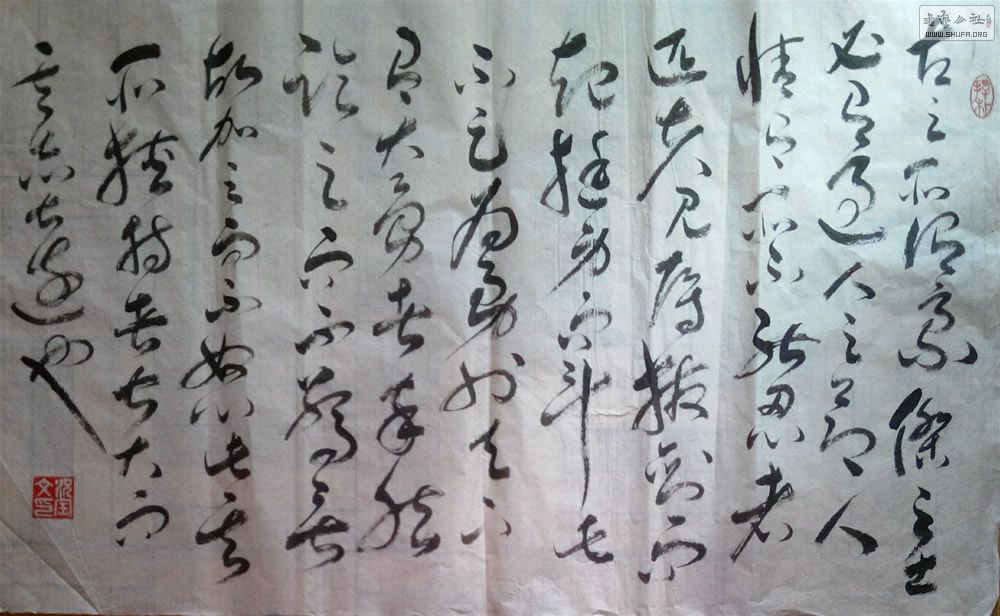 古之所謂豪傑之士
必有過人之節人
情有所不能忍者
匹夫見辱拔劍而
起挺身而斗此
不足為勇也天下
有大勇者卒然
臨之而不驚無
故加之而不怒此其
所挾持者甚大而
其志甚遠也
书法公社
WWW.SHUFA.ORG